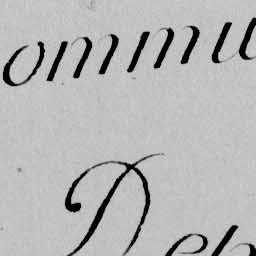 ommu
Deb